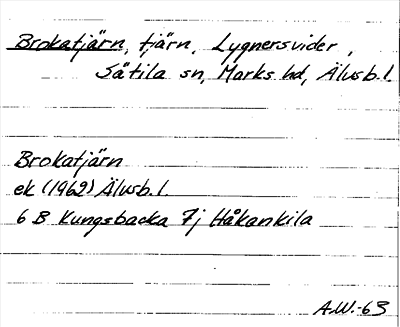 Brokatjärn, tjärn, Lygnersvider,
Sätila sn, Marks hd, Älvsb. l.
Brokatjärn
ek (1962) Älvsb. l.
6 B Kungsbacka 7j Håkankila
A.W.-63